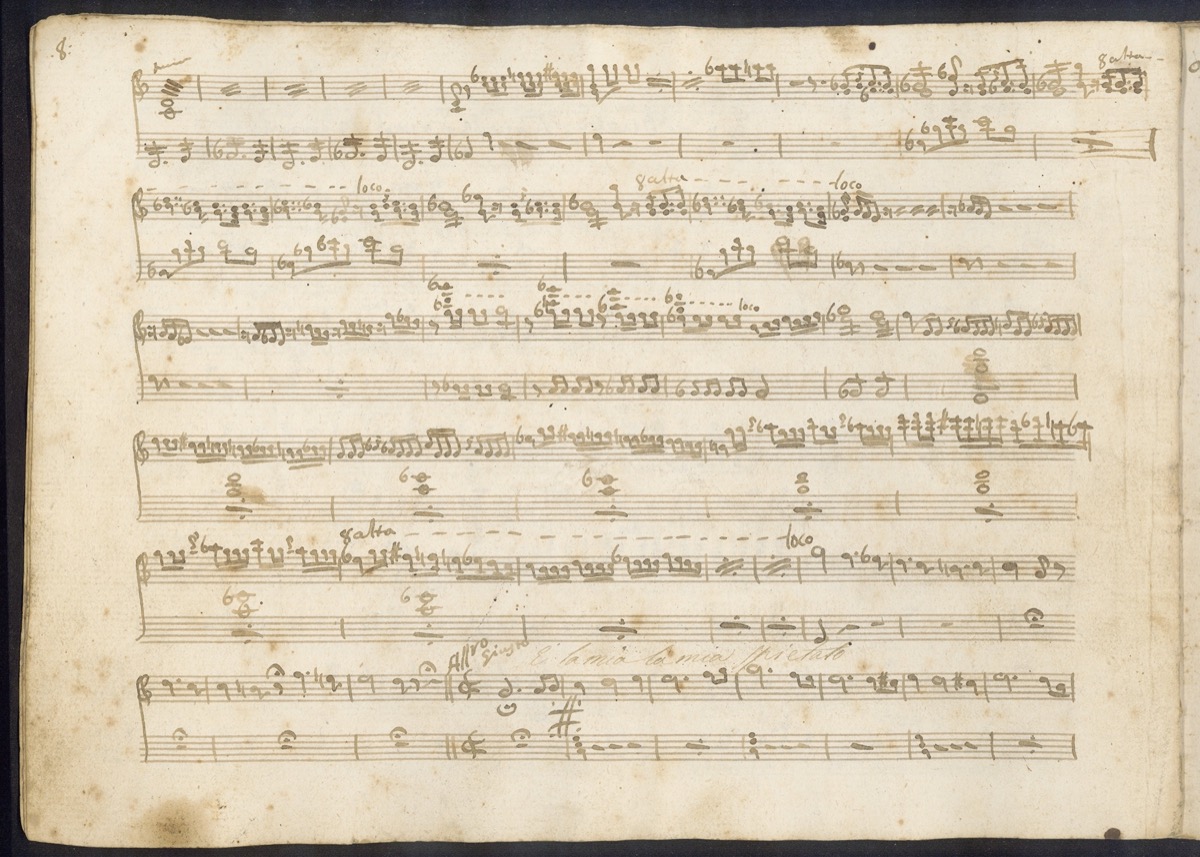 8:
8 alta
loco
8 alta loco
loco
8 alta loco
Allro giusto
E la mia la mia